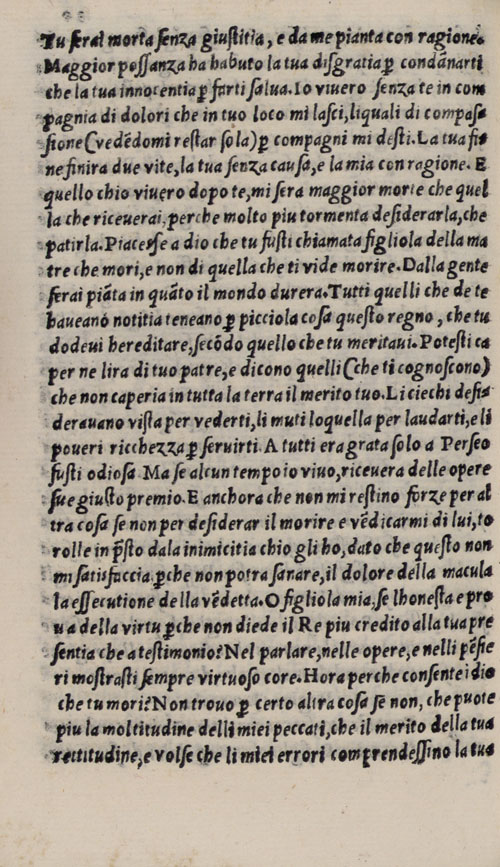 Tu serai morta senza giustitia, e da me pianta con ragione.
Maggior possanza ha habuto la tua disgratia ꝑ condānarti
che la tua innocentia ꝑ farti salua. Io viuero senza te in com
pagnia di dolori che in tuo loco mi lasci, liquali di compas
sione (vedēdomi restar sola) ꝑ compagni mi desti. La tua fi
ne finira due vite, la tua senza causa, e la mia con ragione. E
quello chio viuero dopo te, mi sera maggior morte che quel
la che riceuerai. perche molto piu tormenta desiderarla, che
patirla. Piacesse a dio che tu fusti chiamata figliola della ma
tre che mori, e non di quella che ti vide morire. Dalla gente
serai piāta in quāto il mondo durera. Tutti quelli che de te
haueano notitia teneano ꝑ picciola cosa questo regno, che tu
dodeui hereditare, secōdo quello che tu meritaui. Potesti ca
per ne lira di tuo patre, e dicono quelli (che ti cognoscono)
che non caperia in tutta la terra il merito tuo. Li ciechi desi
derauano vista per vederti, li muti loquella per laudarti, e li
poueri ricchezza ꝑ seruirti. A tutti era grata solo a Perseo
fusti odiosa. Ma se alcun tempo io viuo, riceuera delle opere
sue giusto premio. E anchora che non mi restino forze per al
tra cosa se non per desiderar il morire e vēdicarmi di lui, to
rolle in p̄sto dala inimicitia chio gli ho, dato che questo non
mi satisfaccia. ꝑche non potra sanare, il dolore della macula
la essecutione della vēdetta. O figliola mia, se lhonesta e pro
ua della virtu ꝑche non diede il Re piu credito alla tua pre
sentia che a testimonio? Nel parlare, nelle opere, e nelli pēsie
ri mostrasti sempre virtuoso core. Hora perche consente idio
che tu mori? Non trouo ꝑ certo altra cosa se non, che puote
piu la moltitudine delli miei peccati, che il merito della tua
rettitudine, e volse che li miei errori comprendessino la tua